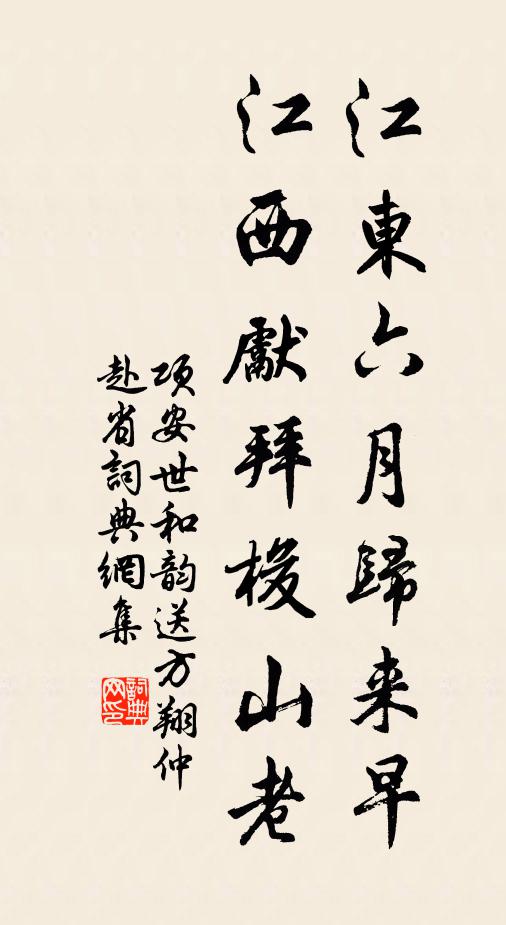 江東六月歸来早
江西獻拜梭山老
项安世和韵送方翔仲
赴省詞典網集
詞典
网印